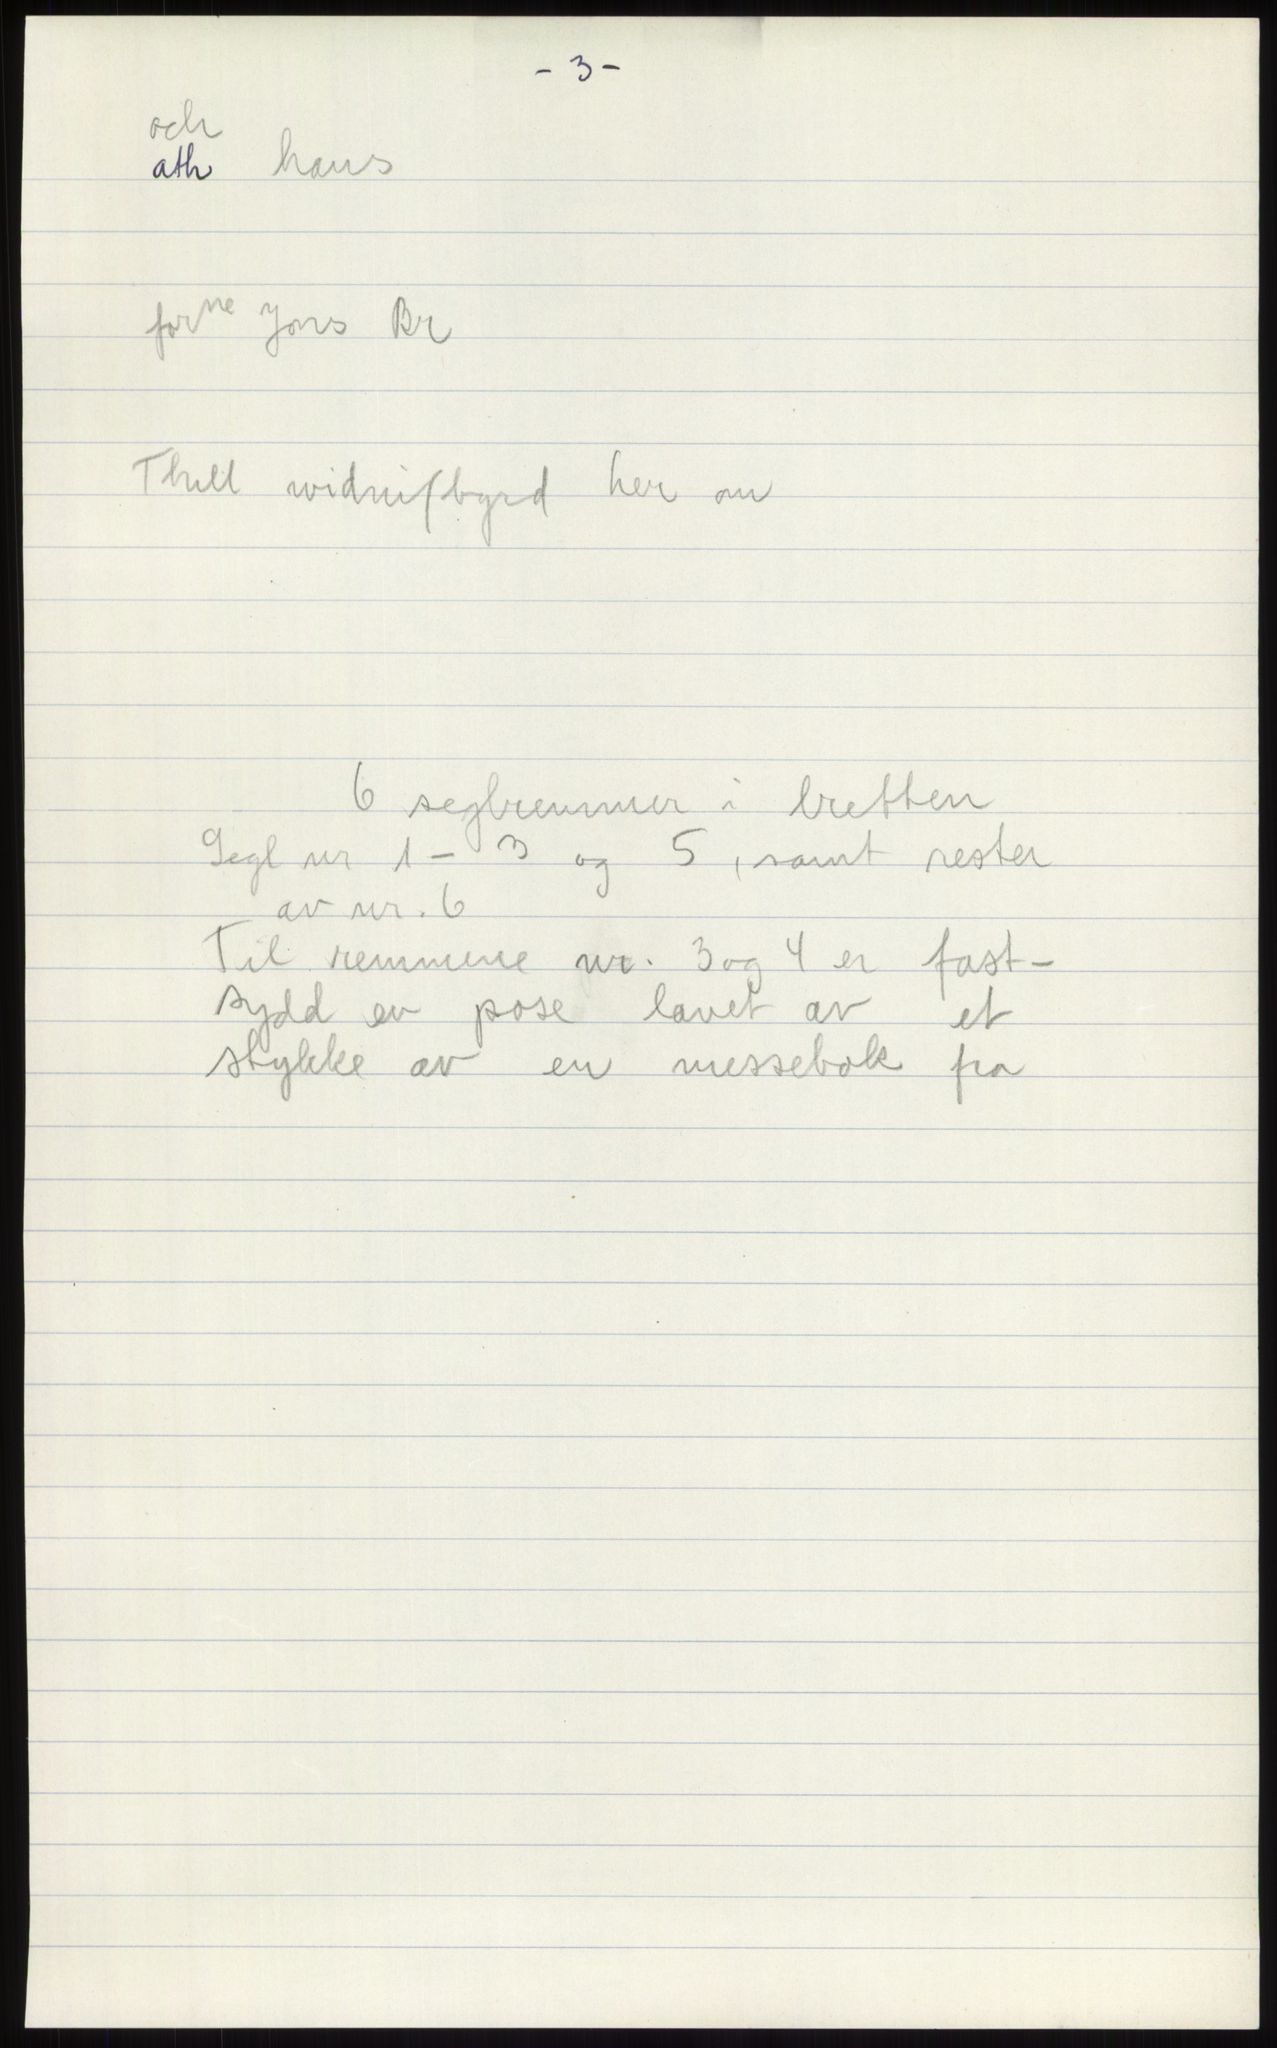 - 3 -
och
ath hans
forne Jons Br
Thill widniſbyrd her om
6 seglremmer i bretten
Segl nr 1 - 3 og 5, samt rester
av nr. 6
Til remmene nr. 3 og 4 er fast-
sydd en pose lavet av et
stykke av en messebok fra